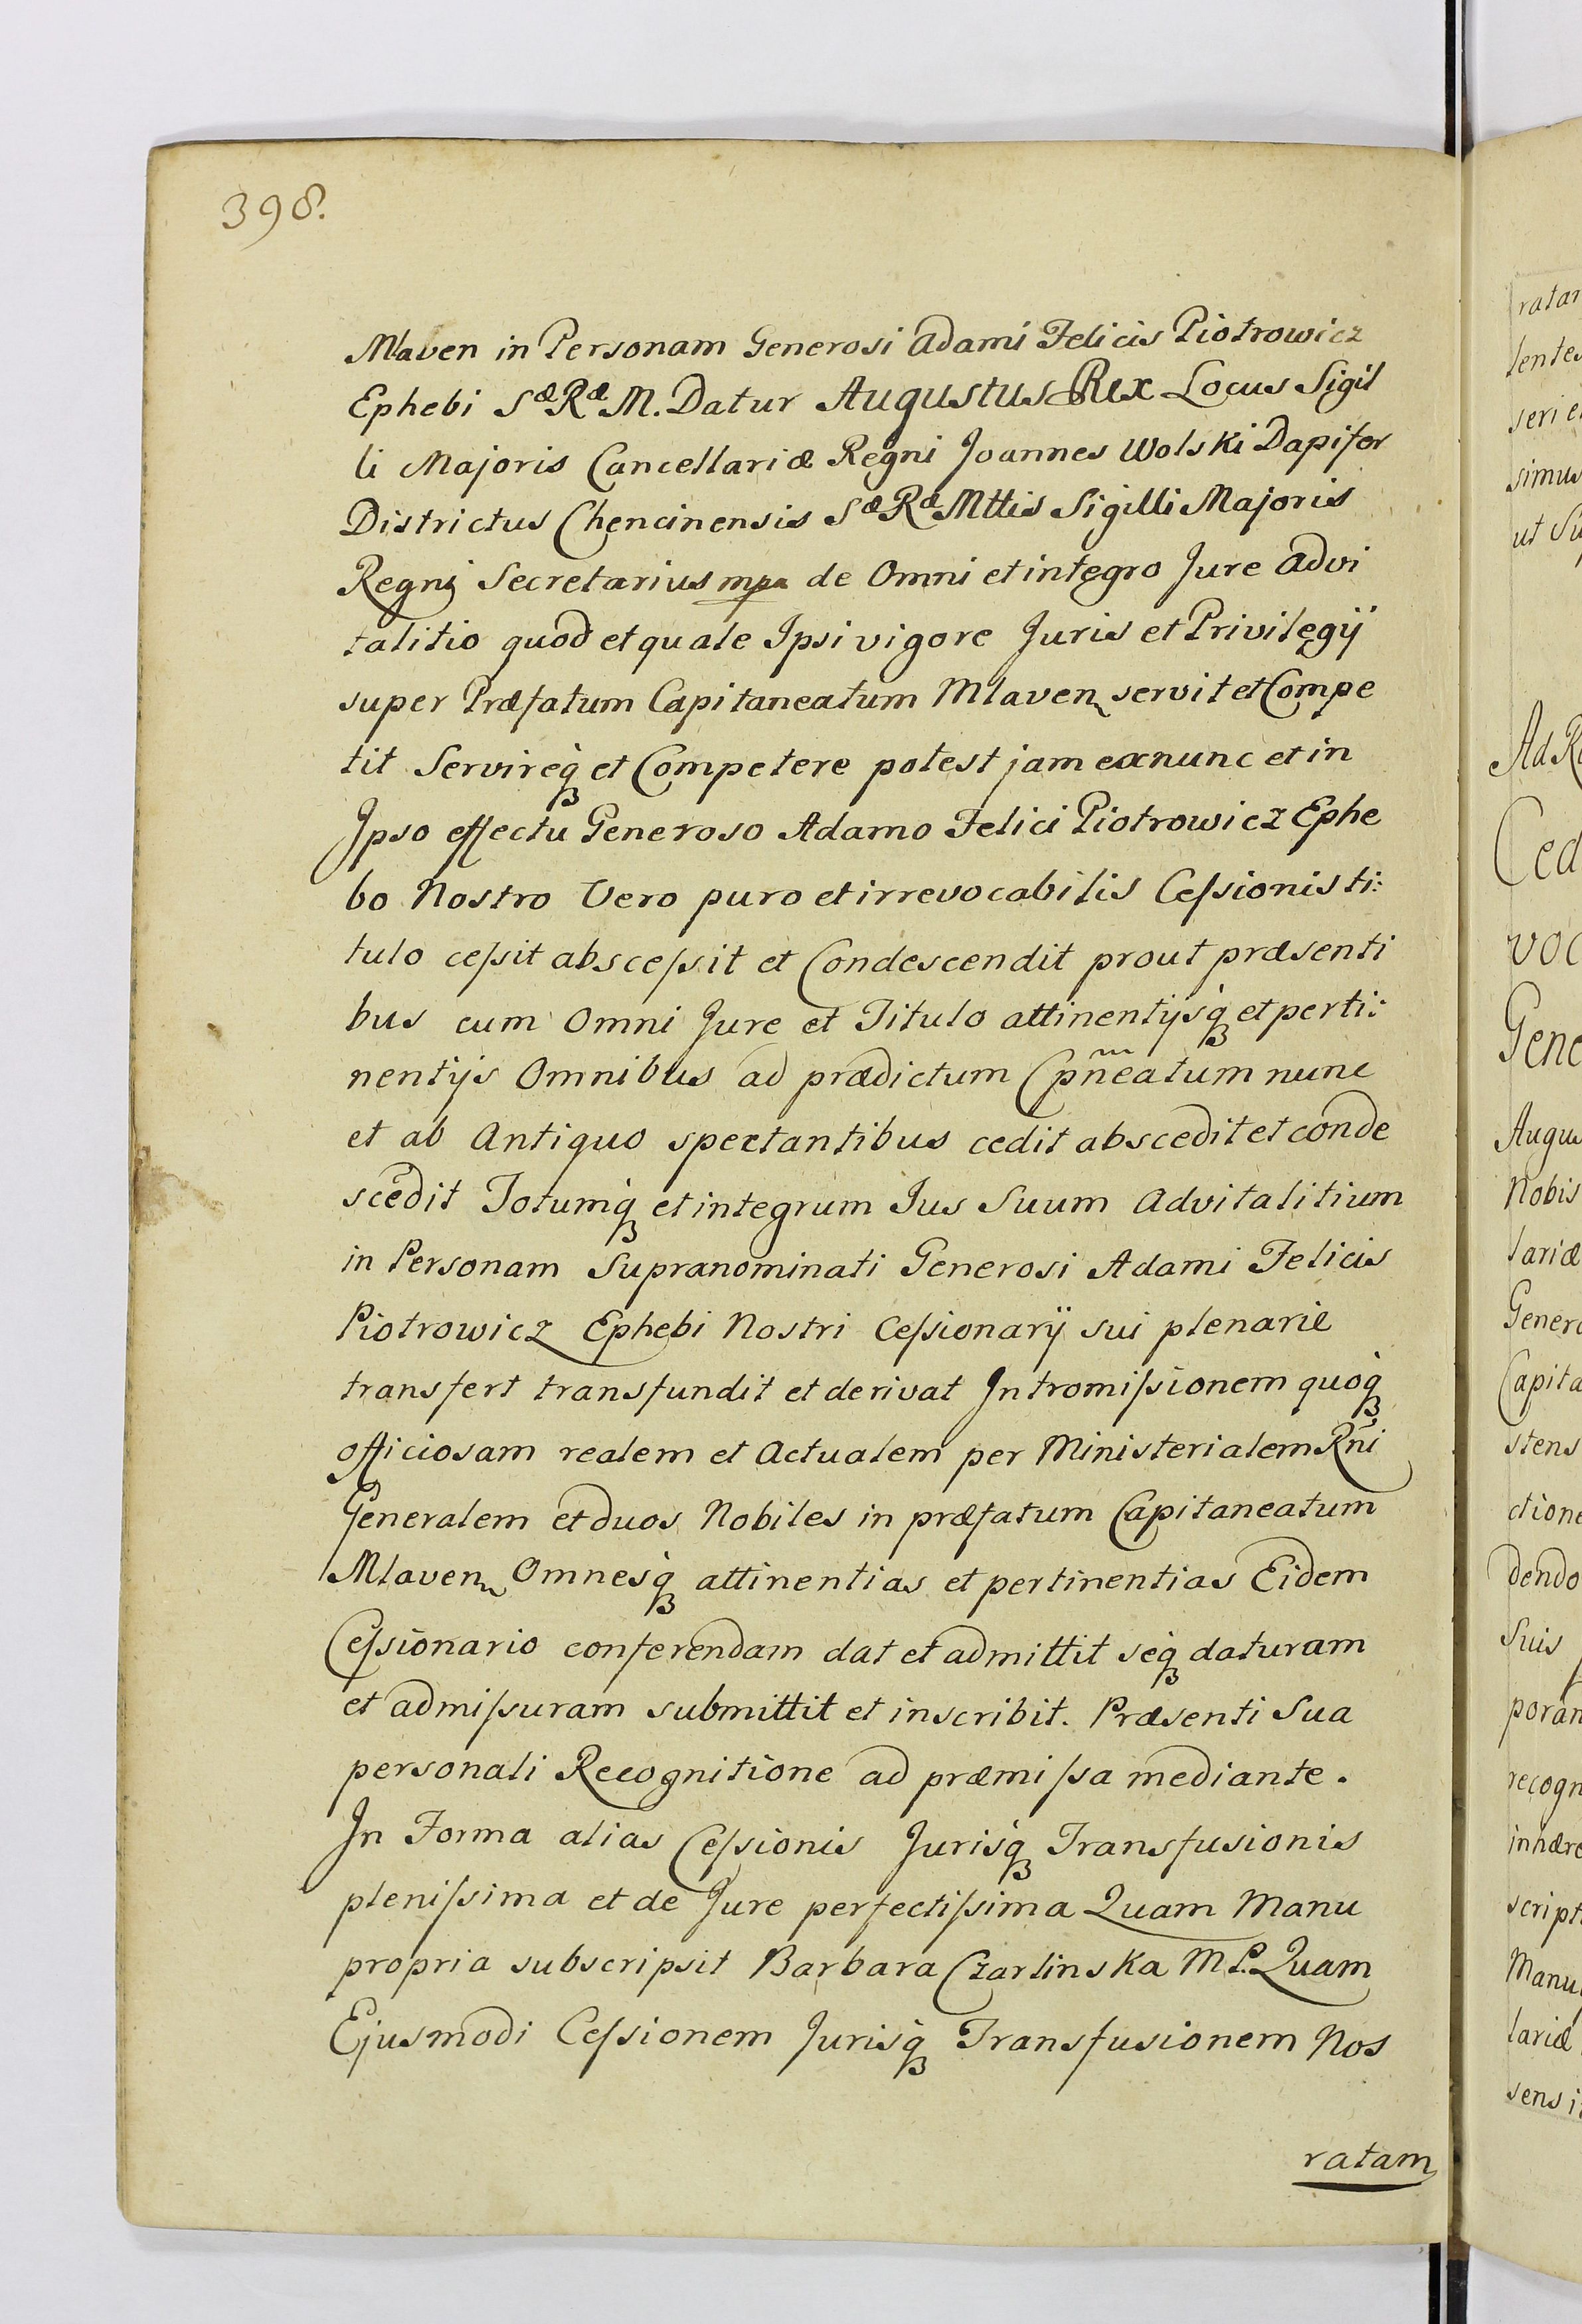 398.
Mlaven in Personam Generosi Adami Felicis Piotrowicz
Ephebi Sæ Ræ M. Datur Augustus Rex Locus Sigil
li Majoris Cancellariæ Regni Joannes Wolski Dapifer
Districtus Chencinensis Sæ Ræ Mttis Sigilli Majoris
Regni Secretarius mpa de Omni et integro Jure Advi
talitio quod et quale Ipsi vigore Juris et Privilegij
super Præfatum Capitaneatum Mlaven servit et Compe
tit Servireq̨ et Competere potest jam ex nunc et in
Ipso effectu Generoso Adamo Felici Piotrowicz Ephe
bo Nostro Vero puro et irrevocabilis Ceſsionis ti:
tulo ceſsit absceſsit et Condescendit prout præsenti
bus cum Omni Jure et Titulo attinentijsq̨ et perti:
nentijs Omnibus ad prædictum Cpneatum nunc
et ab Antiquo spectantibus cedit abscedit et conde
scedit Totumq̨ et integrum Jus Suum Advitalitium
in Personam Supranominati Generosi Adami Felicis
Piotrowicz Ephebi Nostri Ceſsionarij sui plenarie
transfert transfundit et derivat Intromiſsionem quoq̨
officiosam realem et Actualem per Ministerialem Rñi
Generalem et duos Nobiles in præfatum Capitaneatum
Mlaven Omnesq̨ attinentias et pertinentias Eidem
Ceſsionario conferendam dat et admittit seq̨ daturam
et admiſsuram submittit et inscribit. Præsenti Sua
personali Recognitione ad præmiſsa mediante.
In Forma alias Ceſsionis Jurisq̨ Transfusionis
pleniſsima et de Jure perfectiſsima Quam Manu
propria subscripsit Barbara Czarlinska M.P. Quam
Ejusmodi Ceſsionem Jurisq̨ Transfusionem Nos
ratam
lentes
seri e
simus
ut Su
Ad R
Ced
voc
Gene
Augus
Nobis
lariæ
Genero
Capita
stens
ctione
dendo
Suis
poran
recogn
inhære
script
Manu
lariæ
sens i